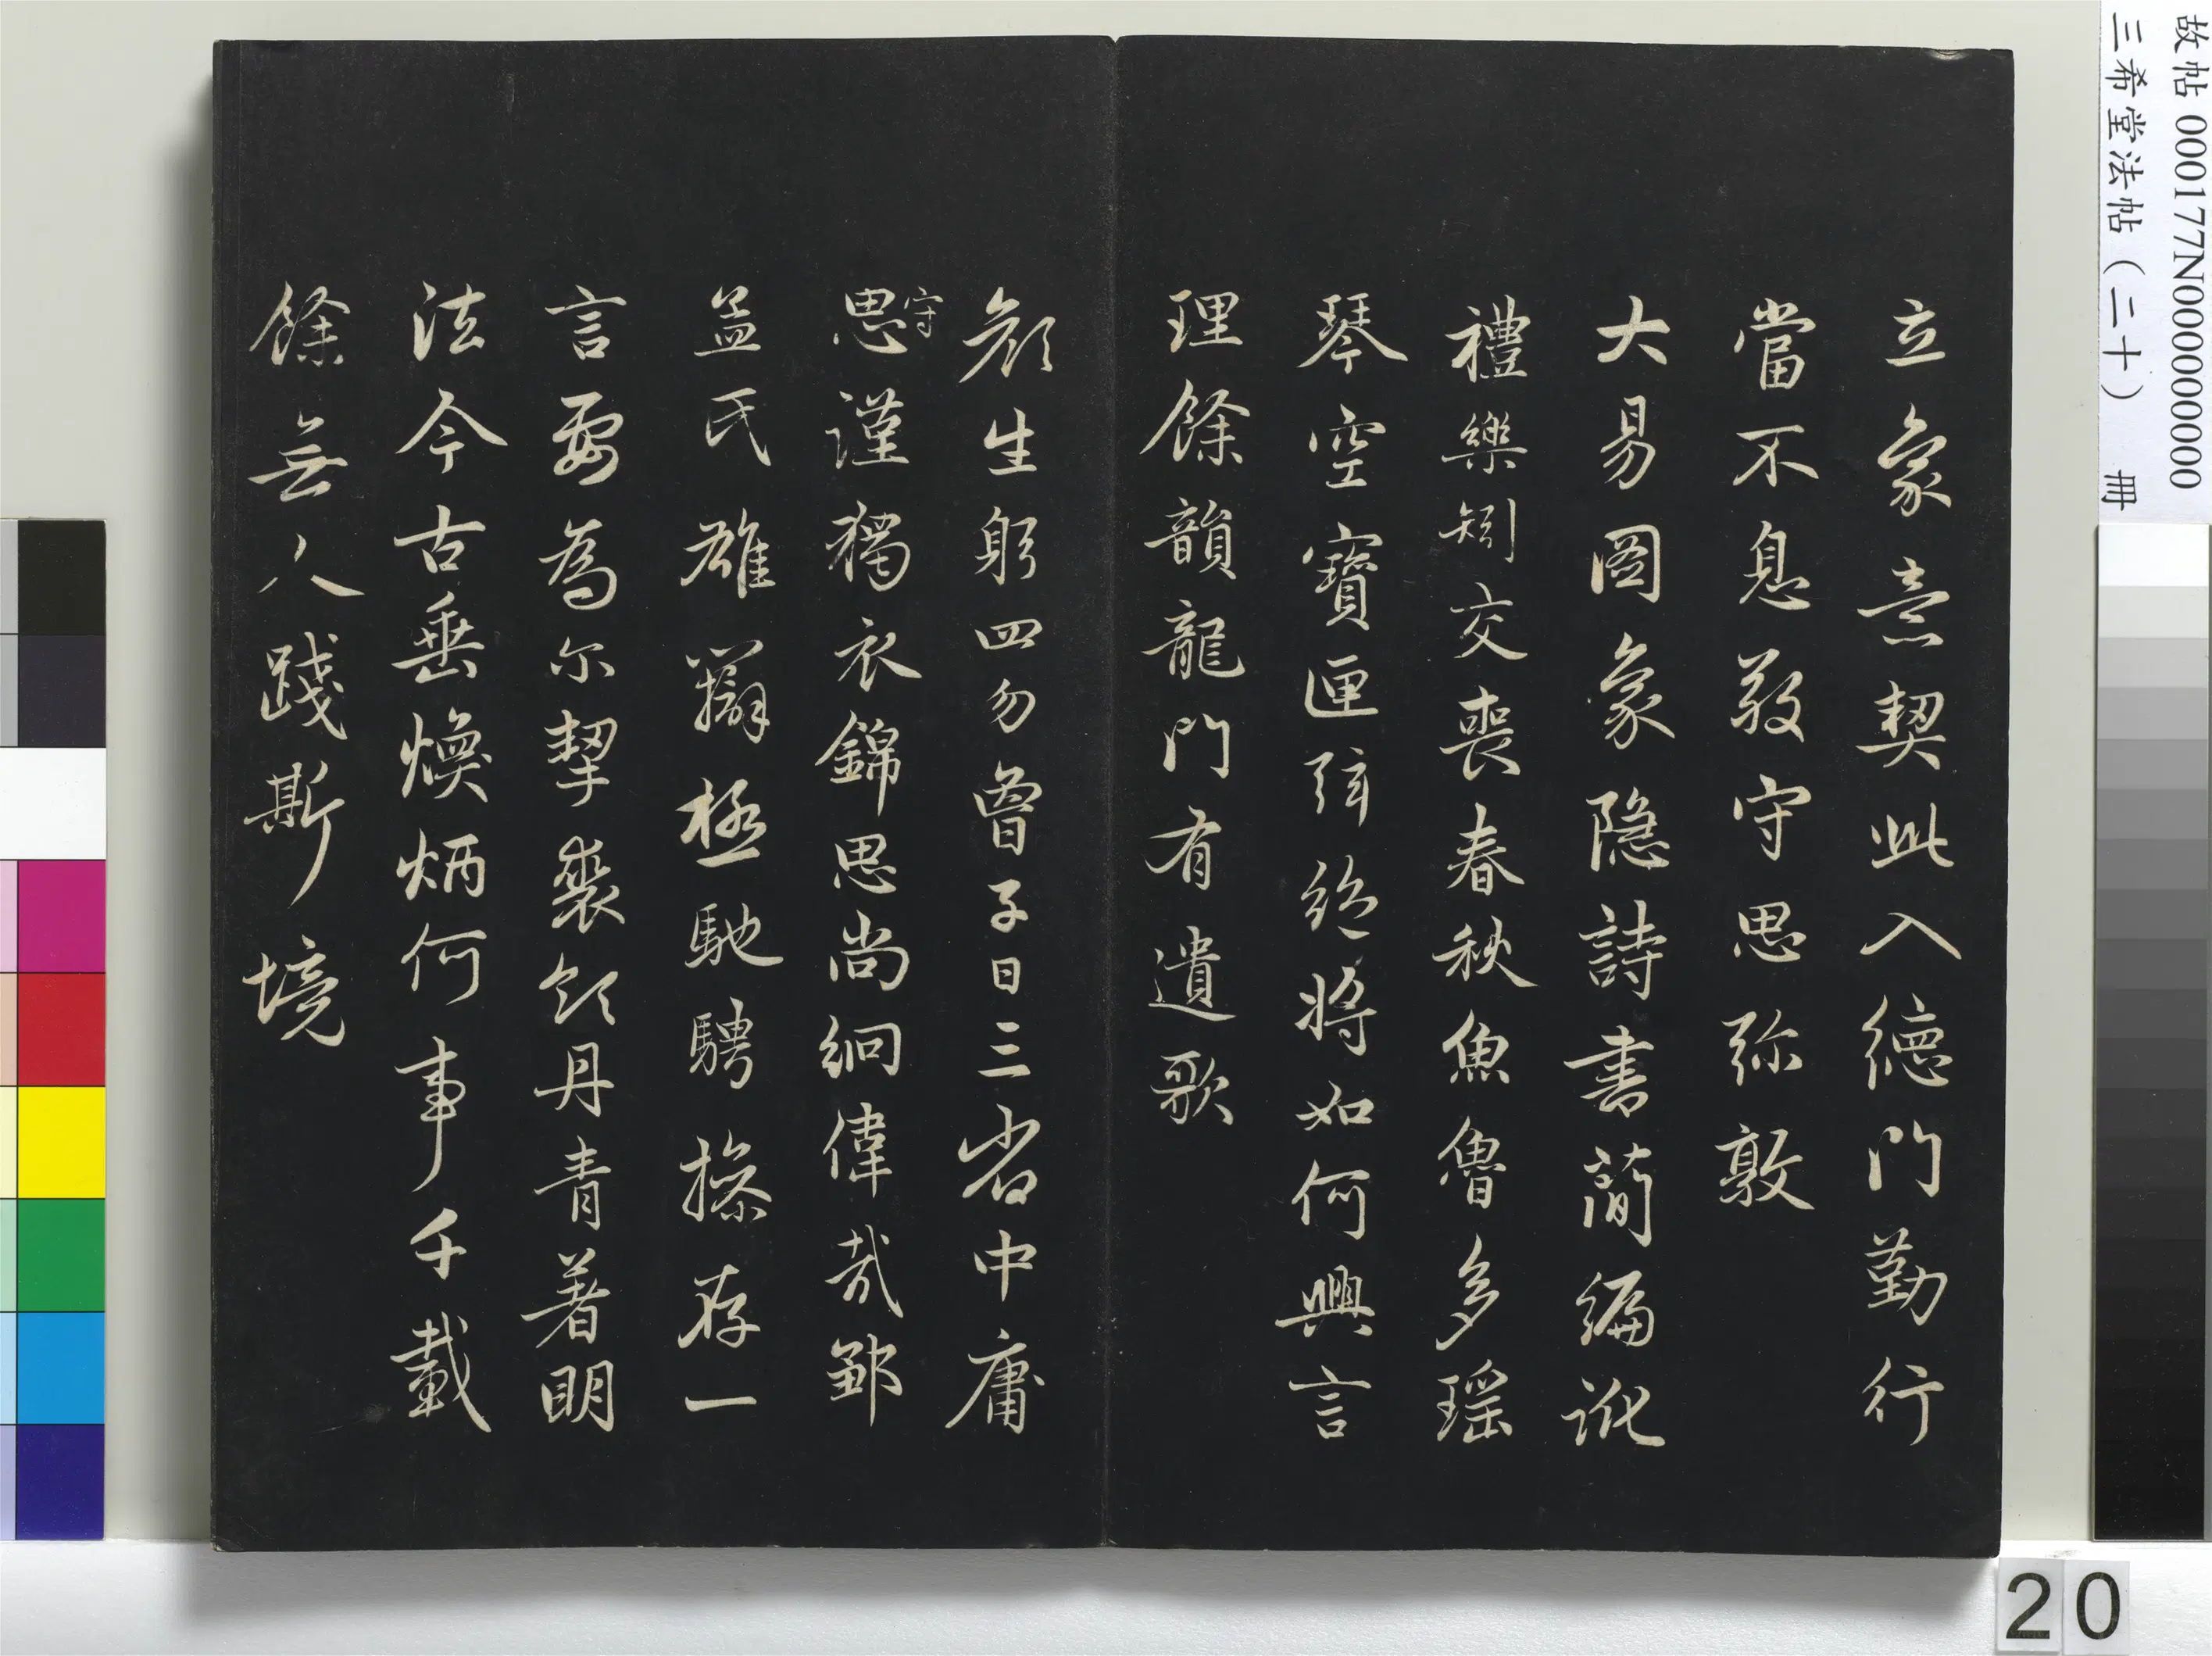 立象意契此入德門勤行
當不息敬守思弥敦
大易圖象隐詩書簡編訛
禮樂矧交喪春秋魚魯多瑶
琴空寶匣弦絶將如何興言
理餘韻龍門有遺歌
顔生躬四勿曾子日三省中庸
思謹獨衣錦思尚絅偉哉鄒
守
孟氏雄辯極馳騁操存一
言要為尓挈裘領丹青著明
法今古垂煥炳何事千載
餘無人踐斯境
故帖 000177N000000000
三希堂法帖(二十) 冊
20